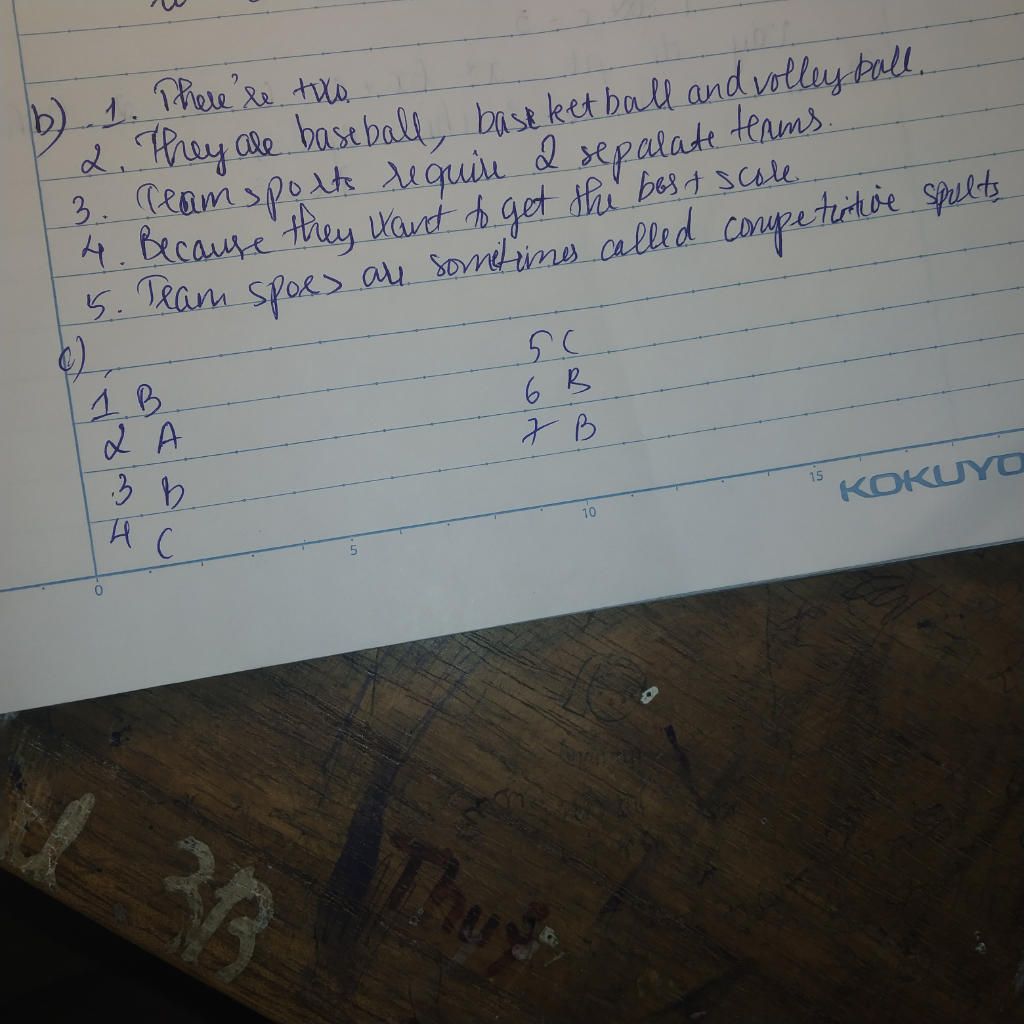 b) 1. There're two
2. They are baseball, basketball and volleyball.
3. Team sports require 2 separate terms.
4. Because they want to get the best score
5. Team spoes are sometimes called competitive sports
c)
1 B
2 A
3 b
4 C
5 C
6 B
7 B
0 5 10 15
KOKUYO
3B
Thuý